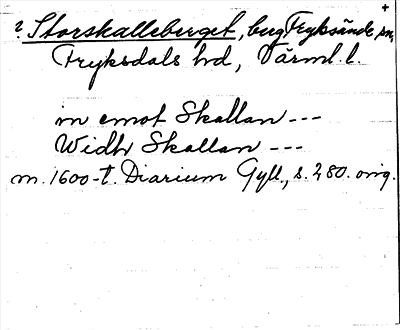 ? Storskalleberget, berg, Fryksände sn,
Fryksdals hd, Värml. l.
in emot Skallan ---
Widh Skallan ---
m. 1600-t. Diarium Gyll., s. 280. orig.